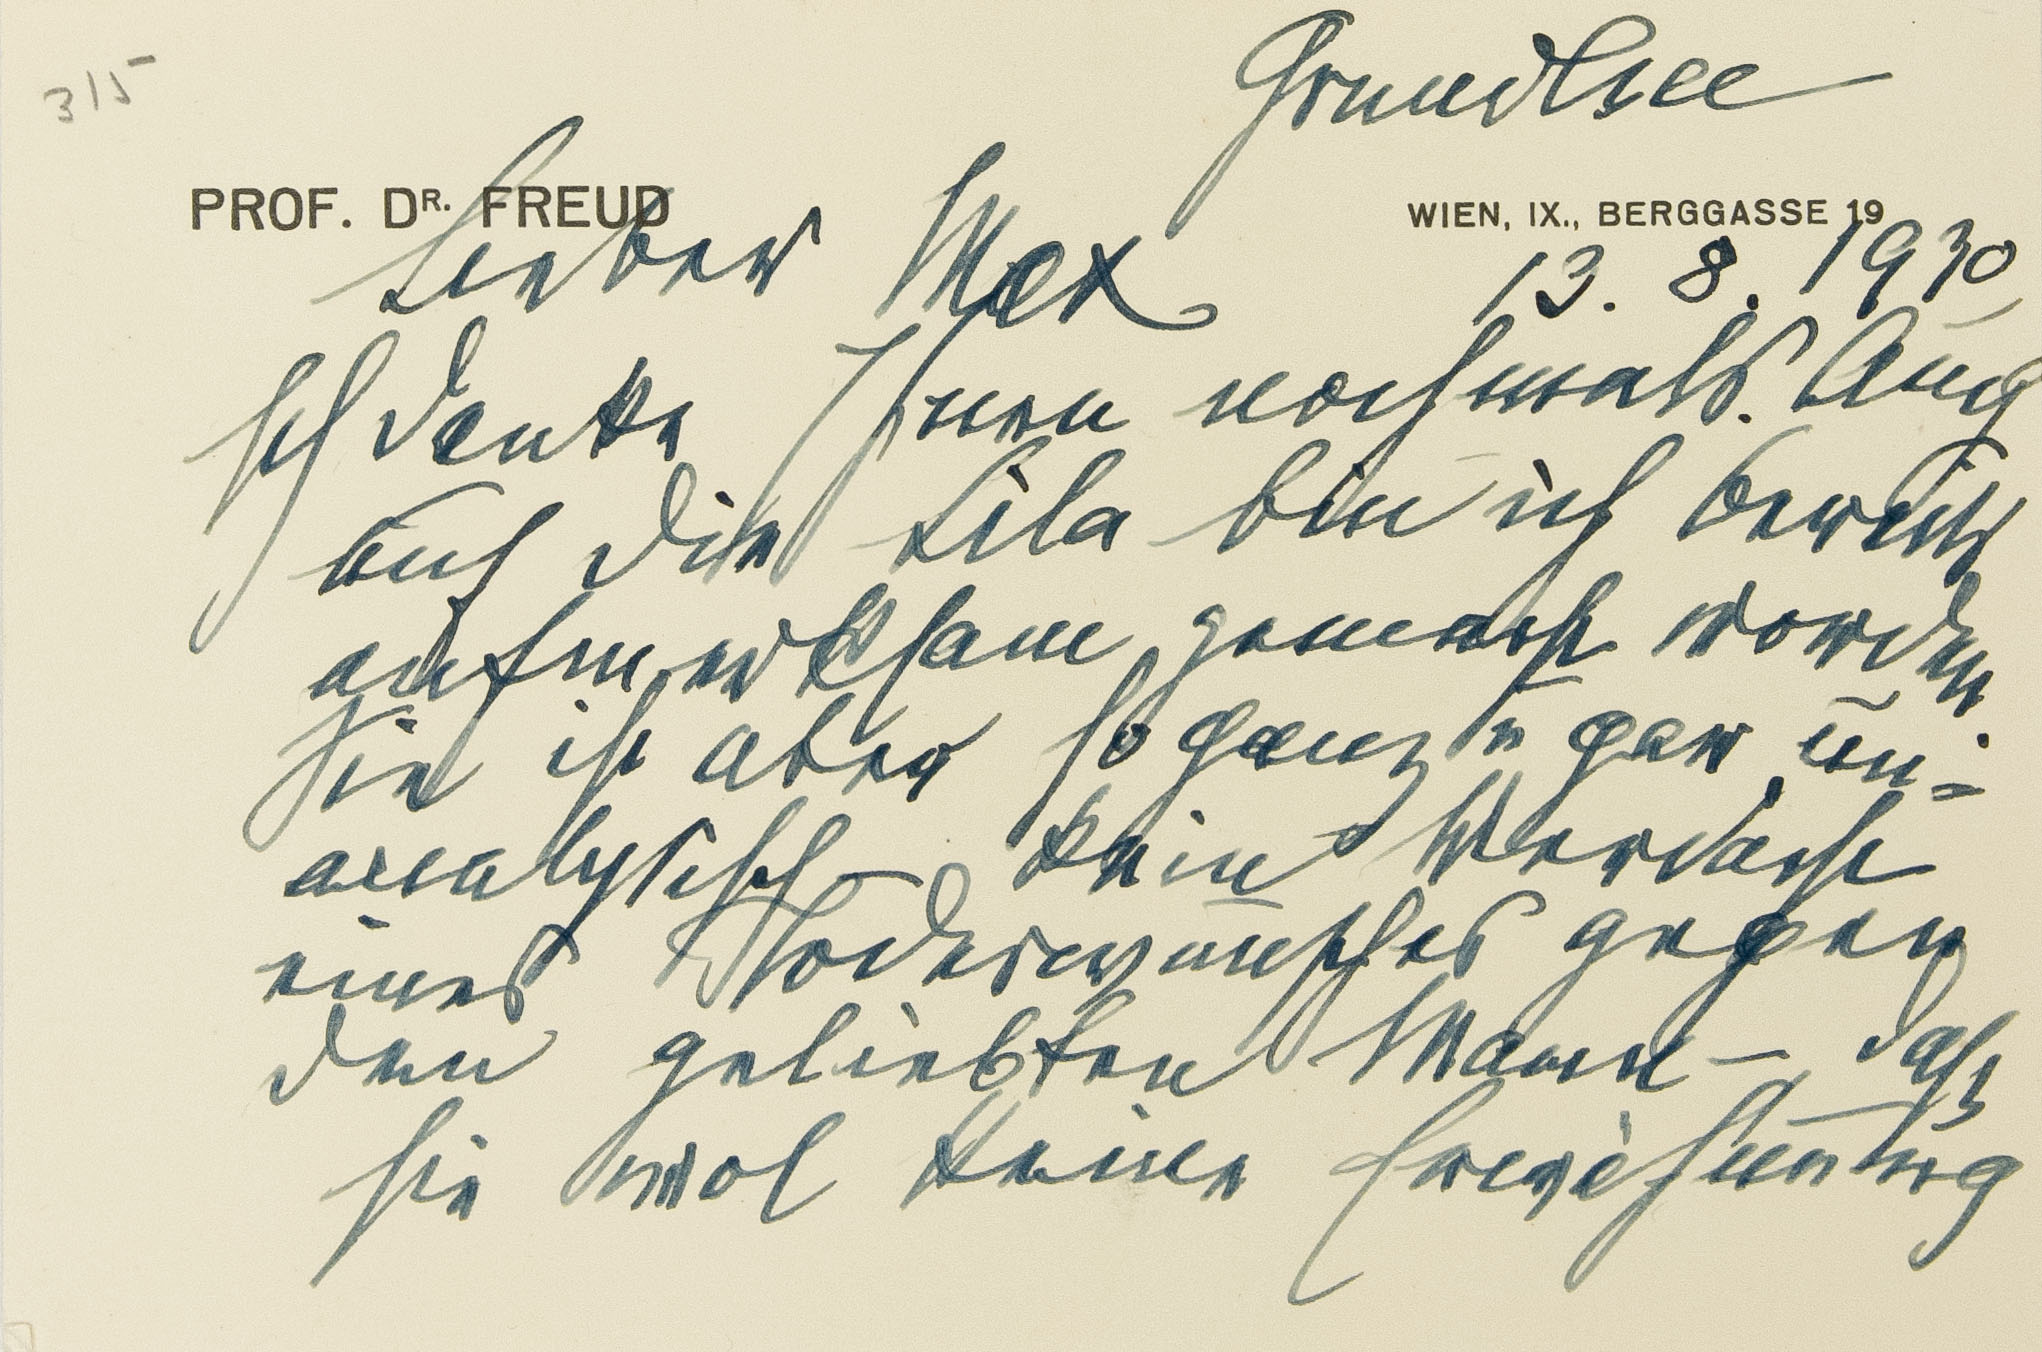 315
Grundlsee
PROF. DR. FREUD
WIEN, IX., BERGGASSE 19
13. 8. 1930
Lieber Max
Ich danke Ihnen nochmals. Auch
auf die Lila bin ich bereits
aufmerksam gemacht worden.
Sie ist aber so ganz u gar un=
analytisch – kein Verdacht
eines Todeswunsches gegen
den geliebten Mann – daß
sie wol keine Erwähnung